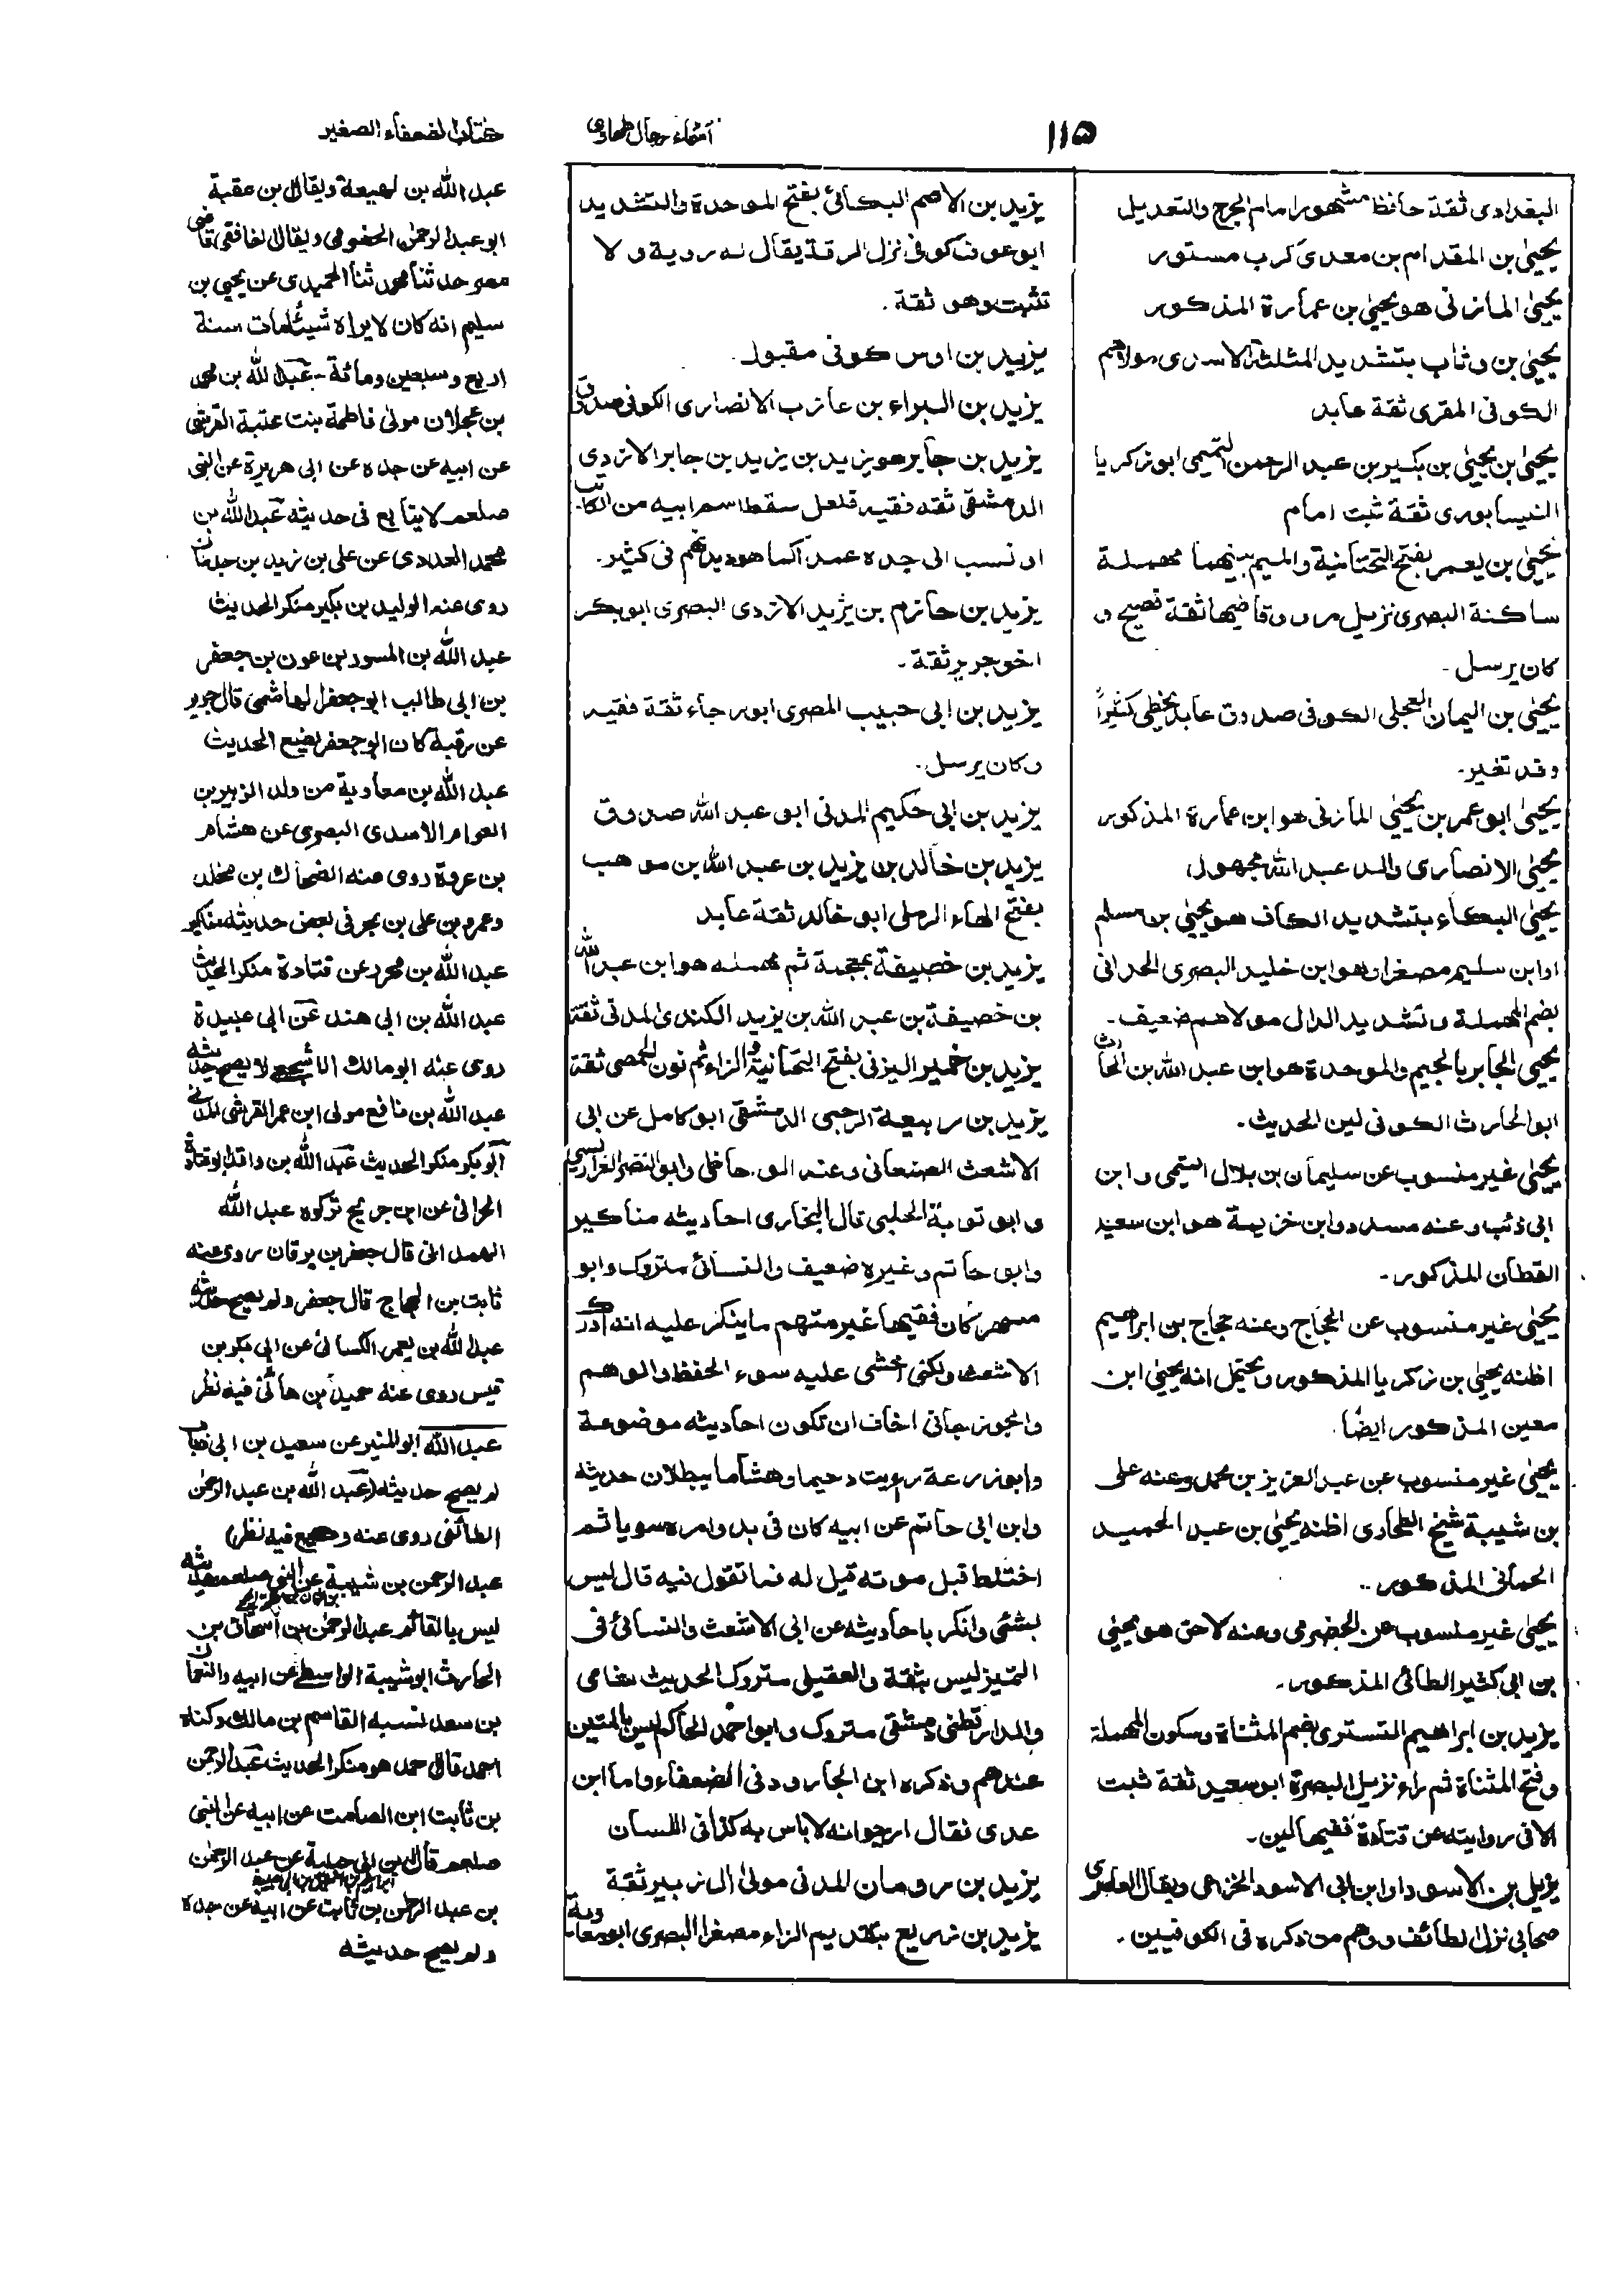 ١١٥
اسماء رجال طحاوی
كتاب الضعفاء الصغير
البغدادى ثقة حافظ مشهور امام الجرح والتعديل
يحيى بن المقدام بن معدى كرب مستور
يحيى المازنى هو يحيى بن عمارة المذكور
يحيى بن وثاب بتشديد المثلثة الاسدى مولاهم
الكوفى المقرى ثقة عابد
يحيى بن يحيى بن بكير بن عبد الرحمن التميمى ابو زكريا
النيسابورى ثقة ثبت امام
يحيى بن يعمر بفتح التحتانية والميم بينهما مهملة
ساكنة البصرى نزيل مرو وقاضيها ثقة فصيح و
كان يرسل۔
يحيى بن اليمان العجلى الكوفى صدوق عابد يخطى كثيراً
وقد تغير۔
يحيى ابو عمر بن يحيى المازنى هو ابن عمارة المذكور
يحيى الانصارى والد عبد الله مجهول
يحيى البكاء بتشديد الكاف هو يحيى بن مسلم
او ابن سليم مصغرا وهو ابن خليد البصرى الحدانى
بضم المهملة وتشديد الدال مولاهم ضعيف۔
يحيى الجابر بالجيم والموحدة هو ابن عبد الله بن الحارث
ابو الحارث الكوفى لين الحديث۔
يحيى غير منسوب عن سليمان بن بلال التيمى وابن
ابى ذئب وعنه مسدد وابن خزيمة هو ابن سعيد
القطان المذكور۔
يحيى غير منسوب عن الحجاج وعنه حجاج بن ابراهيم
اظنه يحيى بن زكريا المذكور ويحتمل انه يحيى ابن
معين المذكور ايضًا
يحيى غير منسوب عن عبد العزيز بن محمد وعنه على
بن شيبة شيخ الطحاوى اظنه يحيى بن عبد الحميد
الحمانى المذكور۔
يحيى غير منسوب عن الحضرمى وعنه لاحق هو يحيى
بن ابى كثير الطائى المذكور۔
يزيد بن ابراهيم التسترى بضم المثناة وسكون المهملة
وفتح المثناة ثم راء نزيل البصرة ابو سعيد ثقة ثبت
الا فى روايته عن قتادة ففيها لين۔
يزيد بن الاسود او ابن ابى الاسود الخزاعى ويقال العامرى
صحابى نزل الطائف ووهم من ذكره فى الكوفيين۔
يزيد بن الاصم البكائى بفتح الموحدة والتشديد
ابو عوف كوفى نزل الرقة يقال له روية ولا
تثبت وهو ثقة۔
يزيد بن اوس كوفى مقبول۔
يزيد بن البراء بن عازب الانصارى الكوفى صدوق
يزيد بن جابر هو يزيد بن يزيد بن جابر الازدى
الدمشقى ثقه فقيه فلعل سقط اسم ابيه من الكاتب
او نسب الى جده عمدا كما هو ديدنهم فى كثير۔
يزيد بن حازم بن يزيد الازدى البصرى ابو بكر
اخو جرير ثقة۔
يزيد بن ابى حبيب المصرى ابو رجاء ثقة فقيه
وكان يرسل۔
يزيد بن ابى حكيم المدنى ابو عبد الله صدوق
يزيد بن خالد بن يزيد بن عبد الله بن موهب
بفتح الهاء الرملى ابو خالد ثقة عابد
يزيد بن خصيفة بمعجمة ثم مهمله هو ابن عبد الله
بن خصيفة بن عبد الله بن يزيد الكندى المدنى ثقة
يزيد بن خمير اليزنى بفتح التحتانية والزاء ثم نون الحمصى ثقة
يزيد بن ربيعة الرحبى الدمشقى ابو كامل عن ابى
الاشعث الصنعانى وعنه ابو حاظى وابو النضر الفراديسى
وابو توبة الحلبى قال البخارى احاديثه مناكير
وابو حاتم وغيره ضعيف والنسائى متروك وابو
مسهر كان فقيها غير متهم ما ينكر عليه انه ادرك
الاشعث ولكنى اخشى عليه سوء الحفظ والوهم
والجوزجانى اخاف ان تكون احاديثه موضوعة
وابو زرعة رءيت دحيما وهشاما يبطلان حديثه
وابن ابى حاتم عن ابيه كان فى بدو امره سويا ثم
اختلط قبل موته قيل له فما تقول فيه قال ليس
بشئى وانكر باحاديثه عن ابى الاشعث والنسائى فى
التميز ليس بثقة والعقيلى متروك الحديث شامى
والدارقطنى دمشقى متروك وابو احمد الحاكم ليس بالمتين
عندهم وذكره ابن الجارود فى الضعفاء واما ابن
عدى فقال ارجوانه لا باس به كذا فى اللسان
يزيد بن رومان المدنى مولى ال زبير ثقة
يزيد بن زريع بتقديم الزاء مصغرا البصرى ابو معاوية
عبد الله بن لهيعة ويقال بن عقبة
ابو عبد الرحمن الحضرمى ويقال الغافقى قاضى
مصر حدثنا محمد ثنا الحميدى عن يحيى بن
سليم انه كان لا يراه شيئا مات سنة
اربع وسبعين ومائة۔ عبد الله بن محمد
بن عجلان مولى فاطمة بنت عتبة القرشى
عن ابيه عن جده عن ابى هريرة عن النبى
صلعم لا يتابع فى حديثه عبد الله بن
محمد العدوى عن على بن زيد بن جدعان
روى عنه الوليد بن بكير منكر الحديث
عبد الله بن المسور بن عون بن جعفر
بن ابى طالب ابو جعفر الهاشمى قال جرير
عن رقبة كان ابو جعفر يضع الحديث
عبد الله بن معاوية من ولد الزبير بن
العوام الاسدى البصرى عن هشام
بن عروة روى عنه الضحاك بن مخلد
وعمرو بن على بن بحر فى بعض حديثه مناكير
عبد الله بن محرر عن قتادة منكر الحديث
عبد الله بن ابى هند عن ابى عبيدة
روى عنه ابو مالك الاشجعى لا يصح حديثه
عبد الله بن نافع مولى ابن عمر القرشى المدنى
ابو بكر منكر الحديث عبد الله بن واقد ابو قتادة
الحرانى عن ابن جريج تركوه عبد الله
الهمدانى قال جعفر بن برقان روى عنه
ثابت بن الحجاج قال جعفر ولم يصح حديثه
عبد الله بن يعمر الكسائى عن ابى بكر بن
قيس روى عنه حميد بن هانى فيه نظر
عبد الله ابو المنير عن سعيد بن ابى ذباب
لم يصح حديثه (عبد الله بن عبد الرحمن
الطائفى روى عنه وكيع فيه نظر)
عبد الرحمن بن شيبة عن النبى صلعم حديثه
ليس بالقائم عبد الرحمن بن اسحاق بن
الحارث ابو شيبة الواسطى عن ابيه والنعمان
بن سعد نسبه القاسم بن مالك وكناه
احمد قال احمد هو منكر الحديث عبد الرحمن
بن ثابت ابن الصامت عن ابيه عن النبى
صلعم قال ابن ابى حبيبة عن عبد الرحمن
بن عبد الرحمن بن ثابت عن ابيه عن جده
ولم يصح حديثه